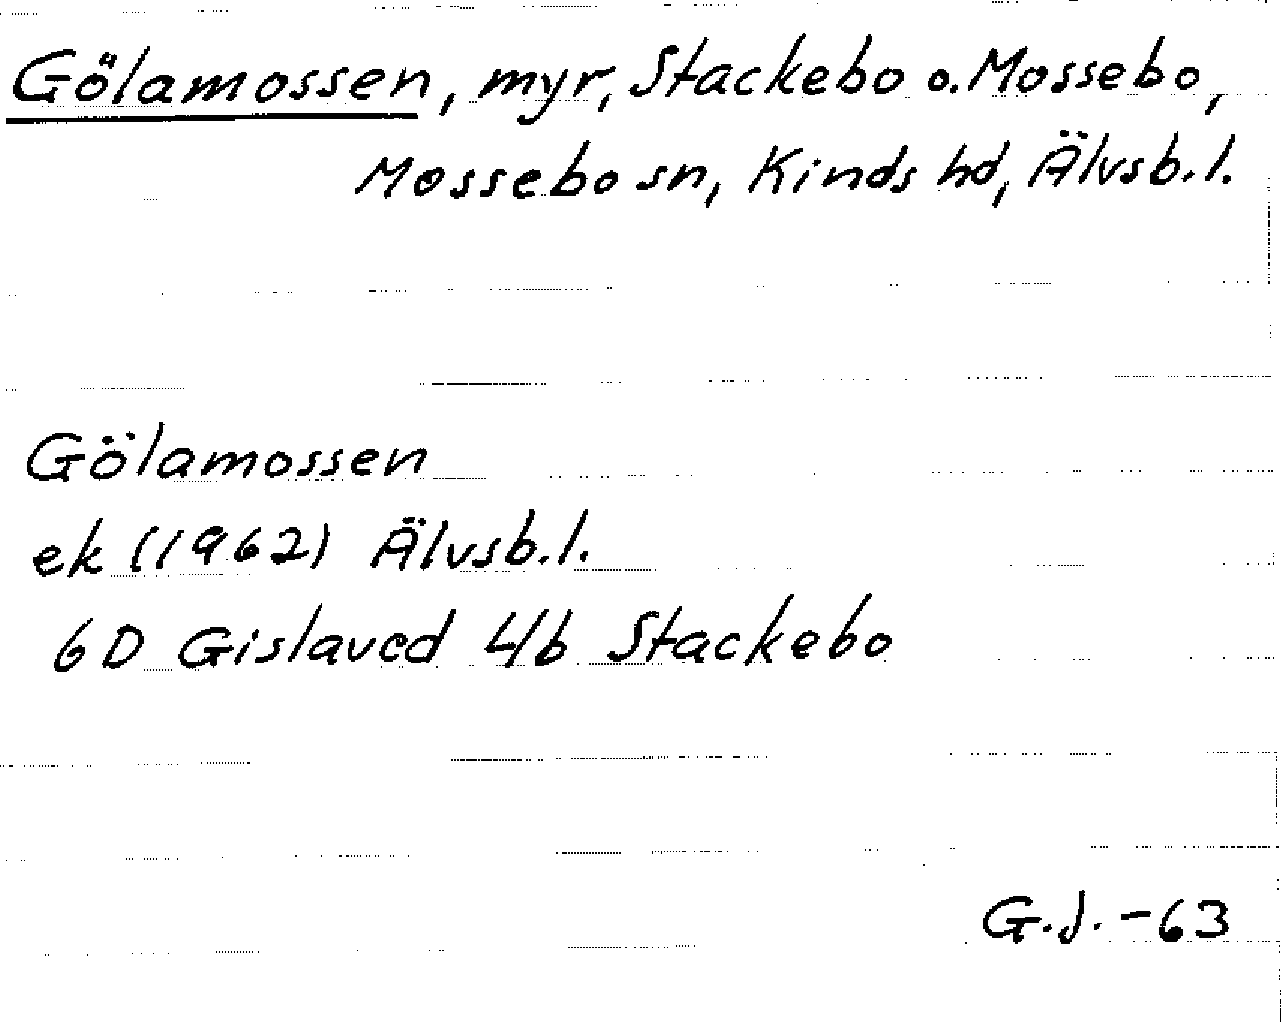 Gölamossen, myr, Stackebo o. Mossebo,
Mossebo sn, Kinds hd, Älvsb. l.
Gölamossen
ek (1962) Älvsb. l.
6D Gislaved 4/b Stackebo
G. J. -63